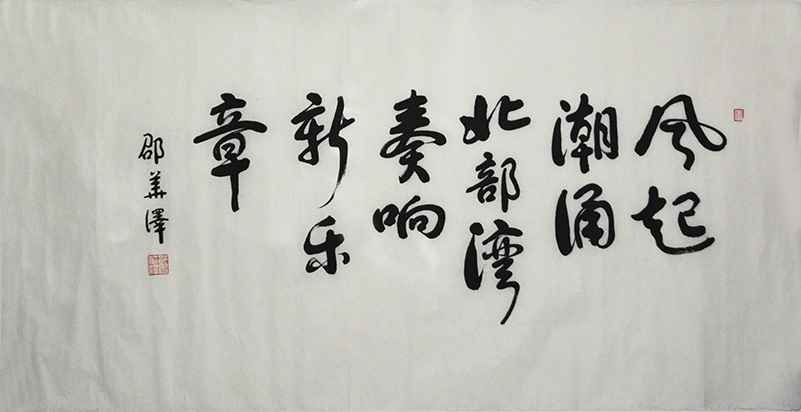 风起
潮涌
北部湾
奏响
新乐
章
邵华泽